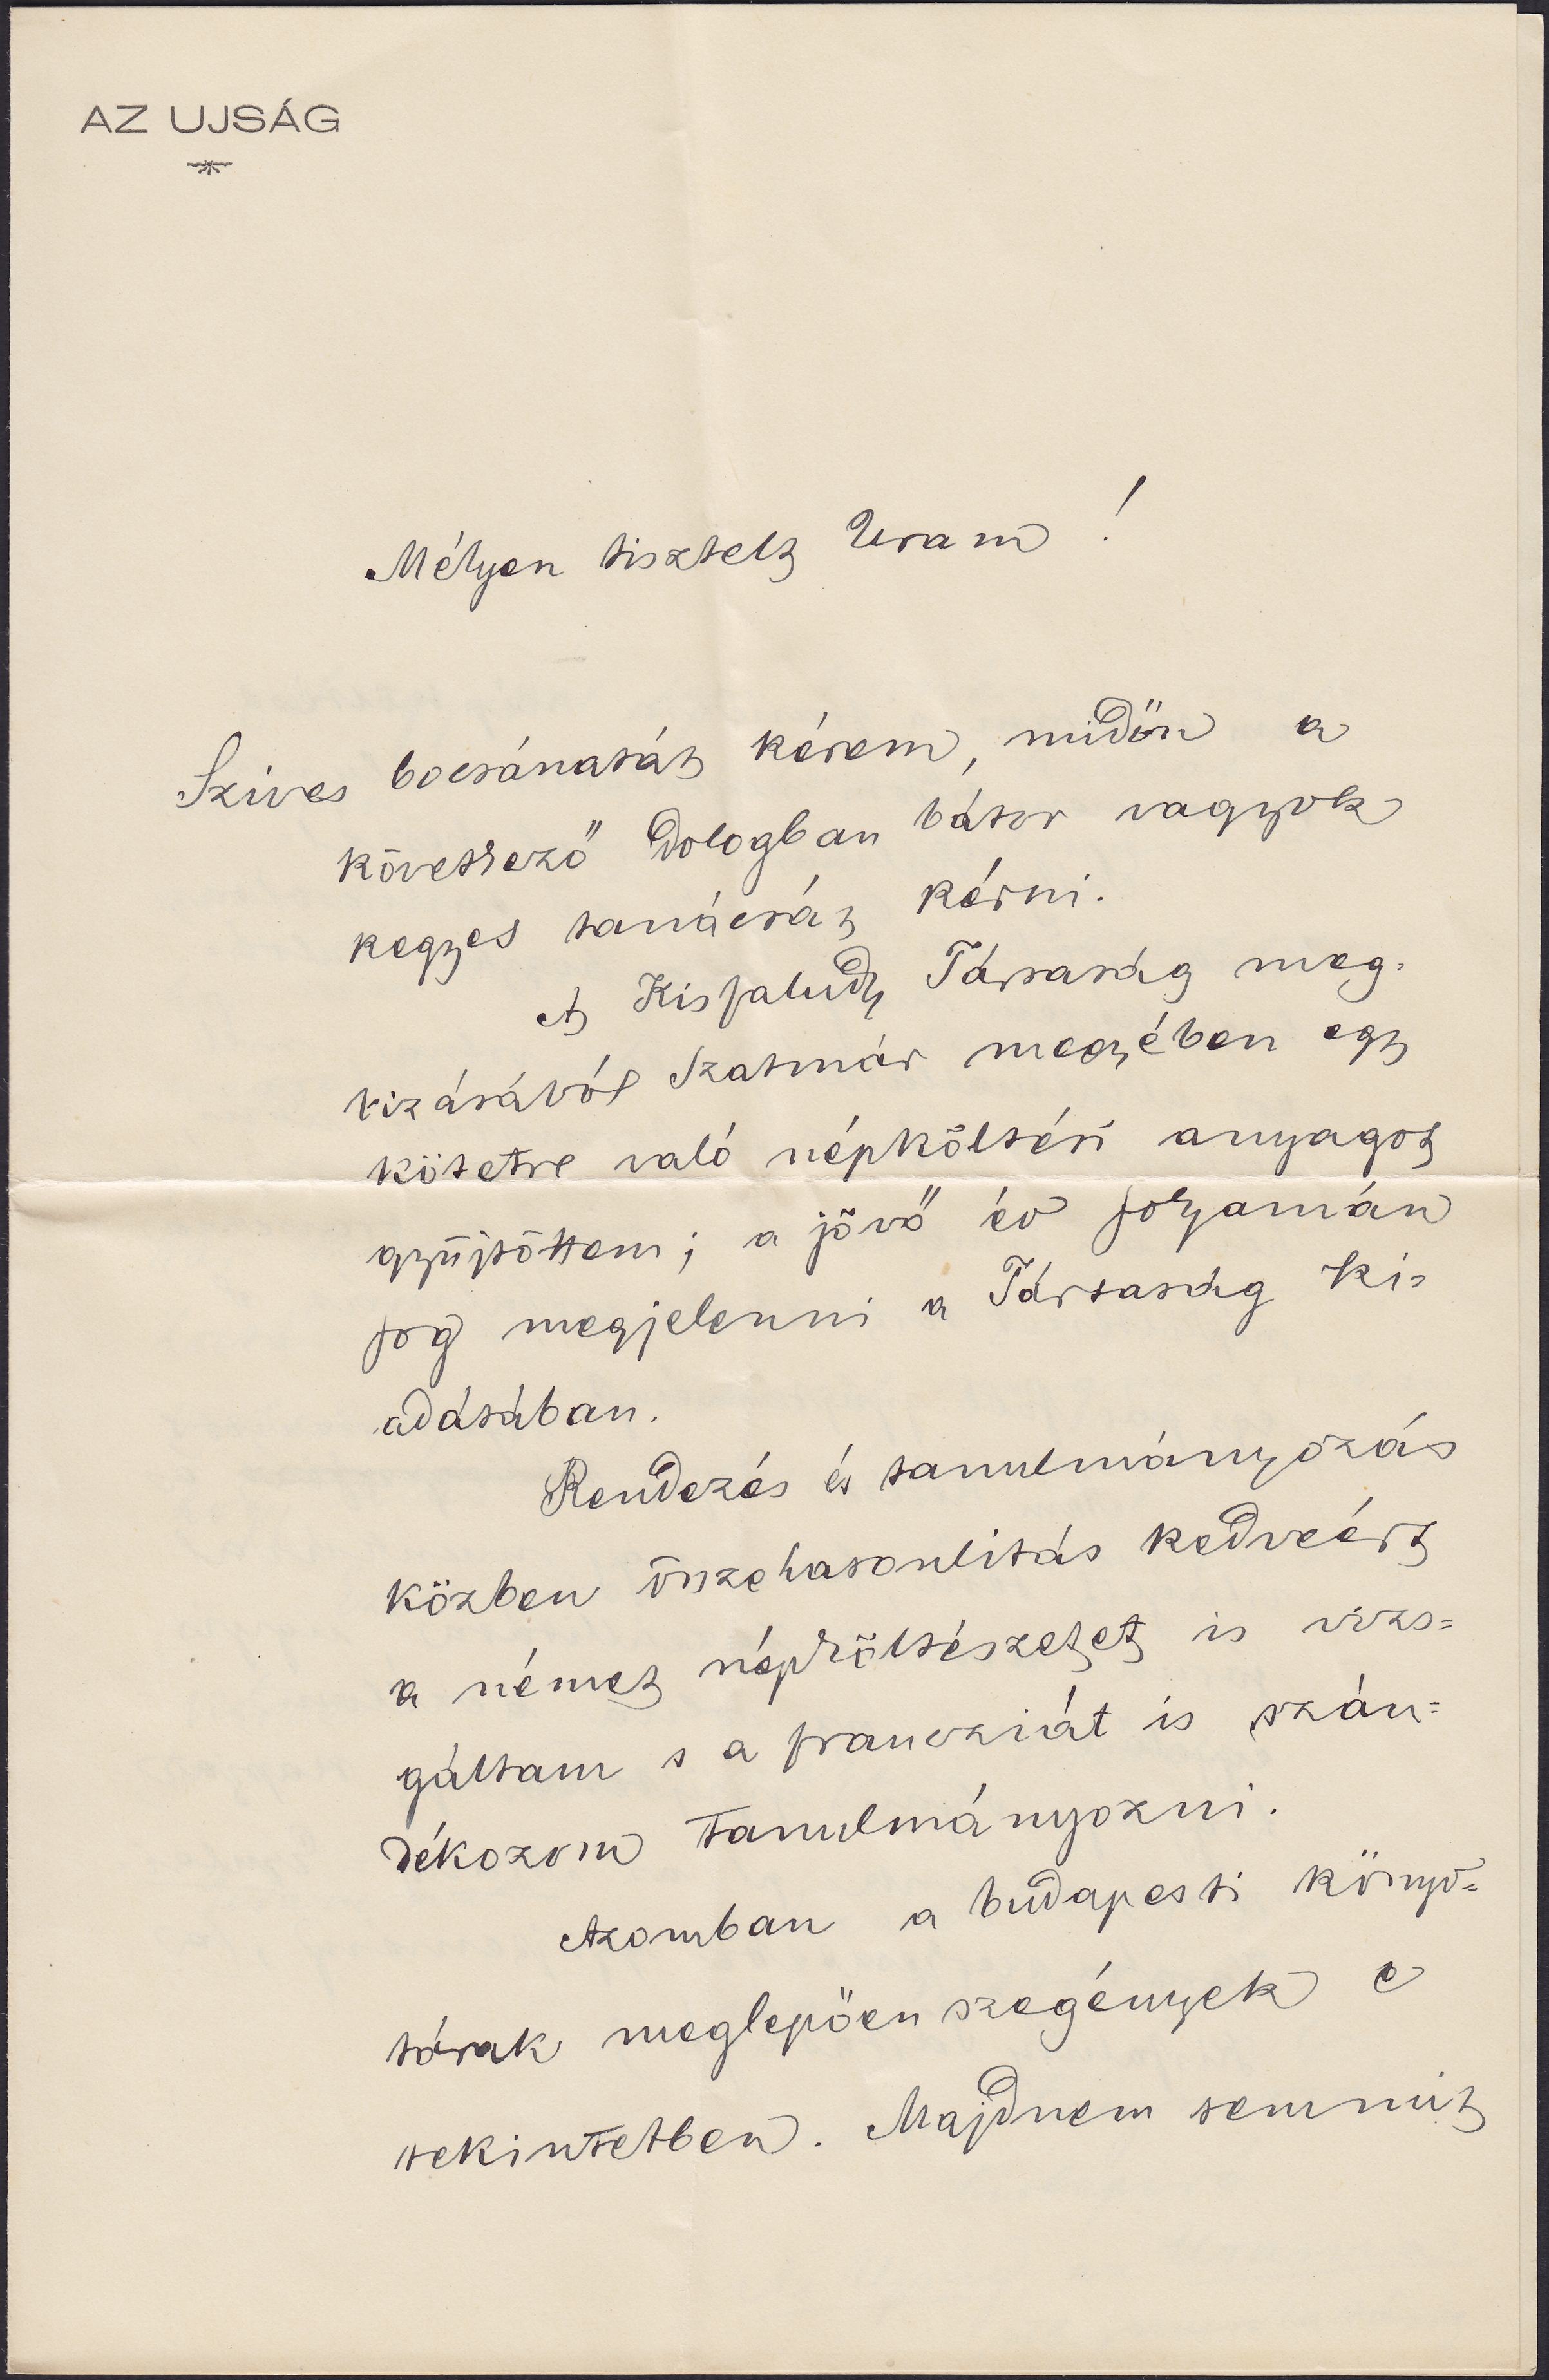 AZ UJSÁG
Mélyen tisztelt Uram!
Szives bocsánatát kérem, midőn a
következő dologban bátor vagyok
kegyes tanácsát kérni.
A Kisfaludy Társaság meg-
bizásából Szatmár megyében egy
kötetre való népköltési anyagot
gyűjtöttem; a jövő év folyamán
fog megjelenni a Társaság ki-
adásában.
Rendezés és tanulmányozás
közben összehasonlitás kedveért
a német népköltészetet is vizs-
gáltam s a francziát is szán-
dékozom tanulmányozni.
Azomban a budapesti könyv-
tárak meglepően szegények e
tekintetben. Majdnem semmit